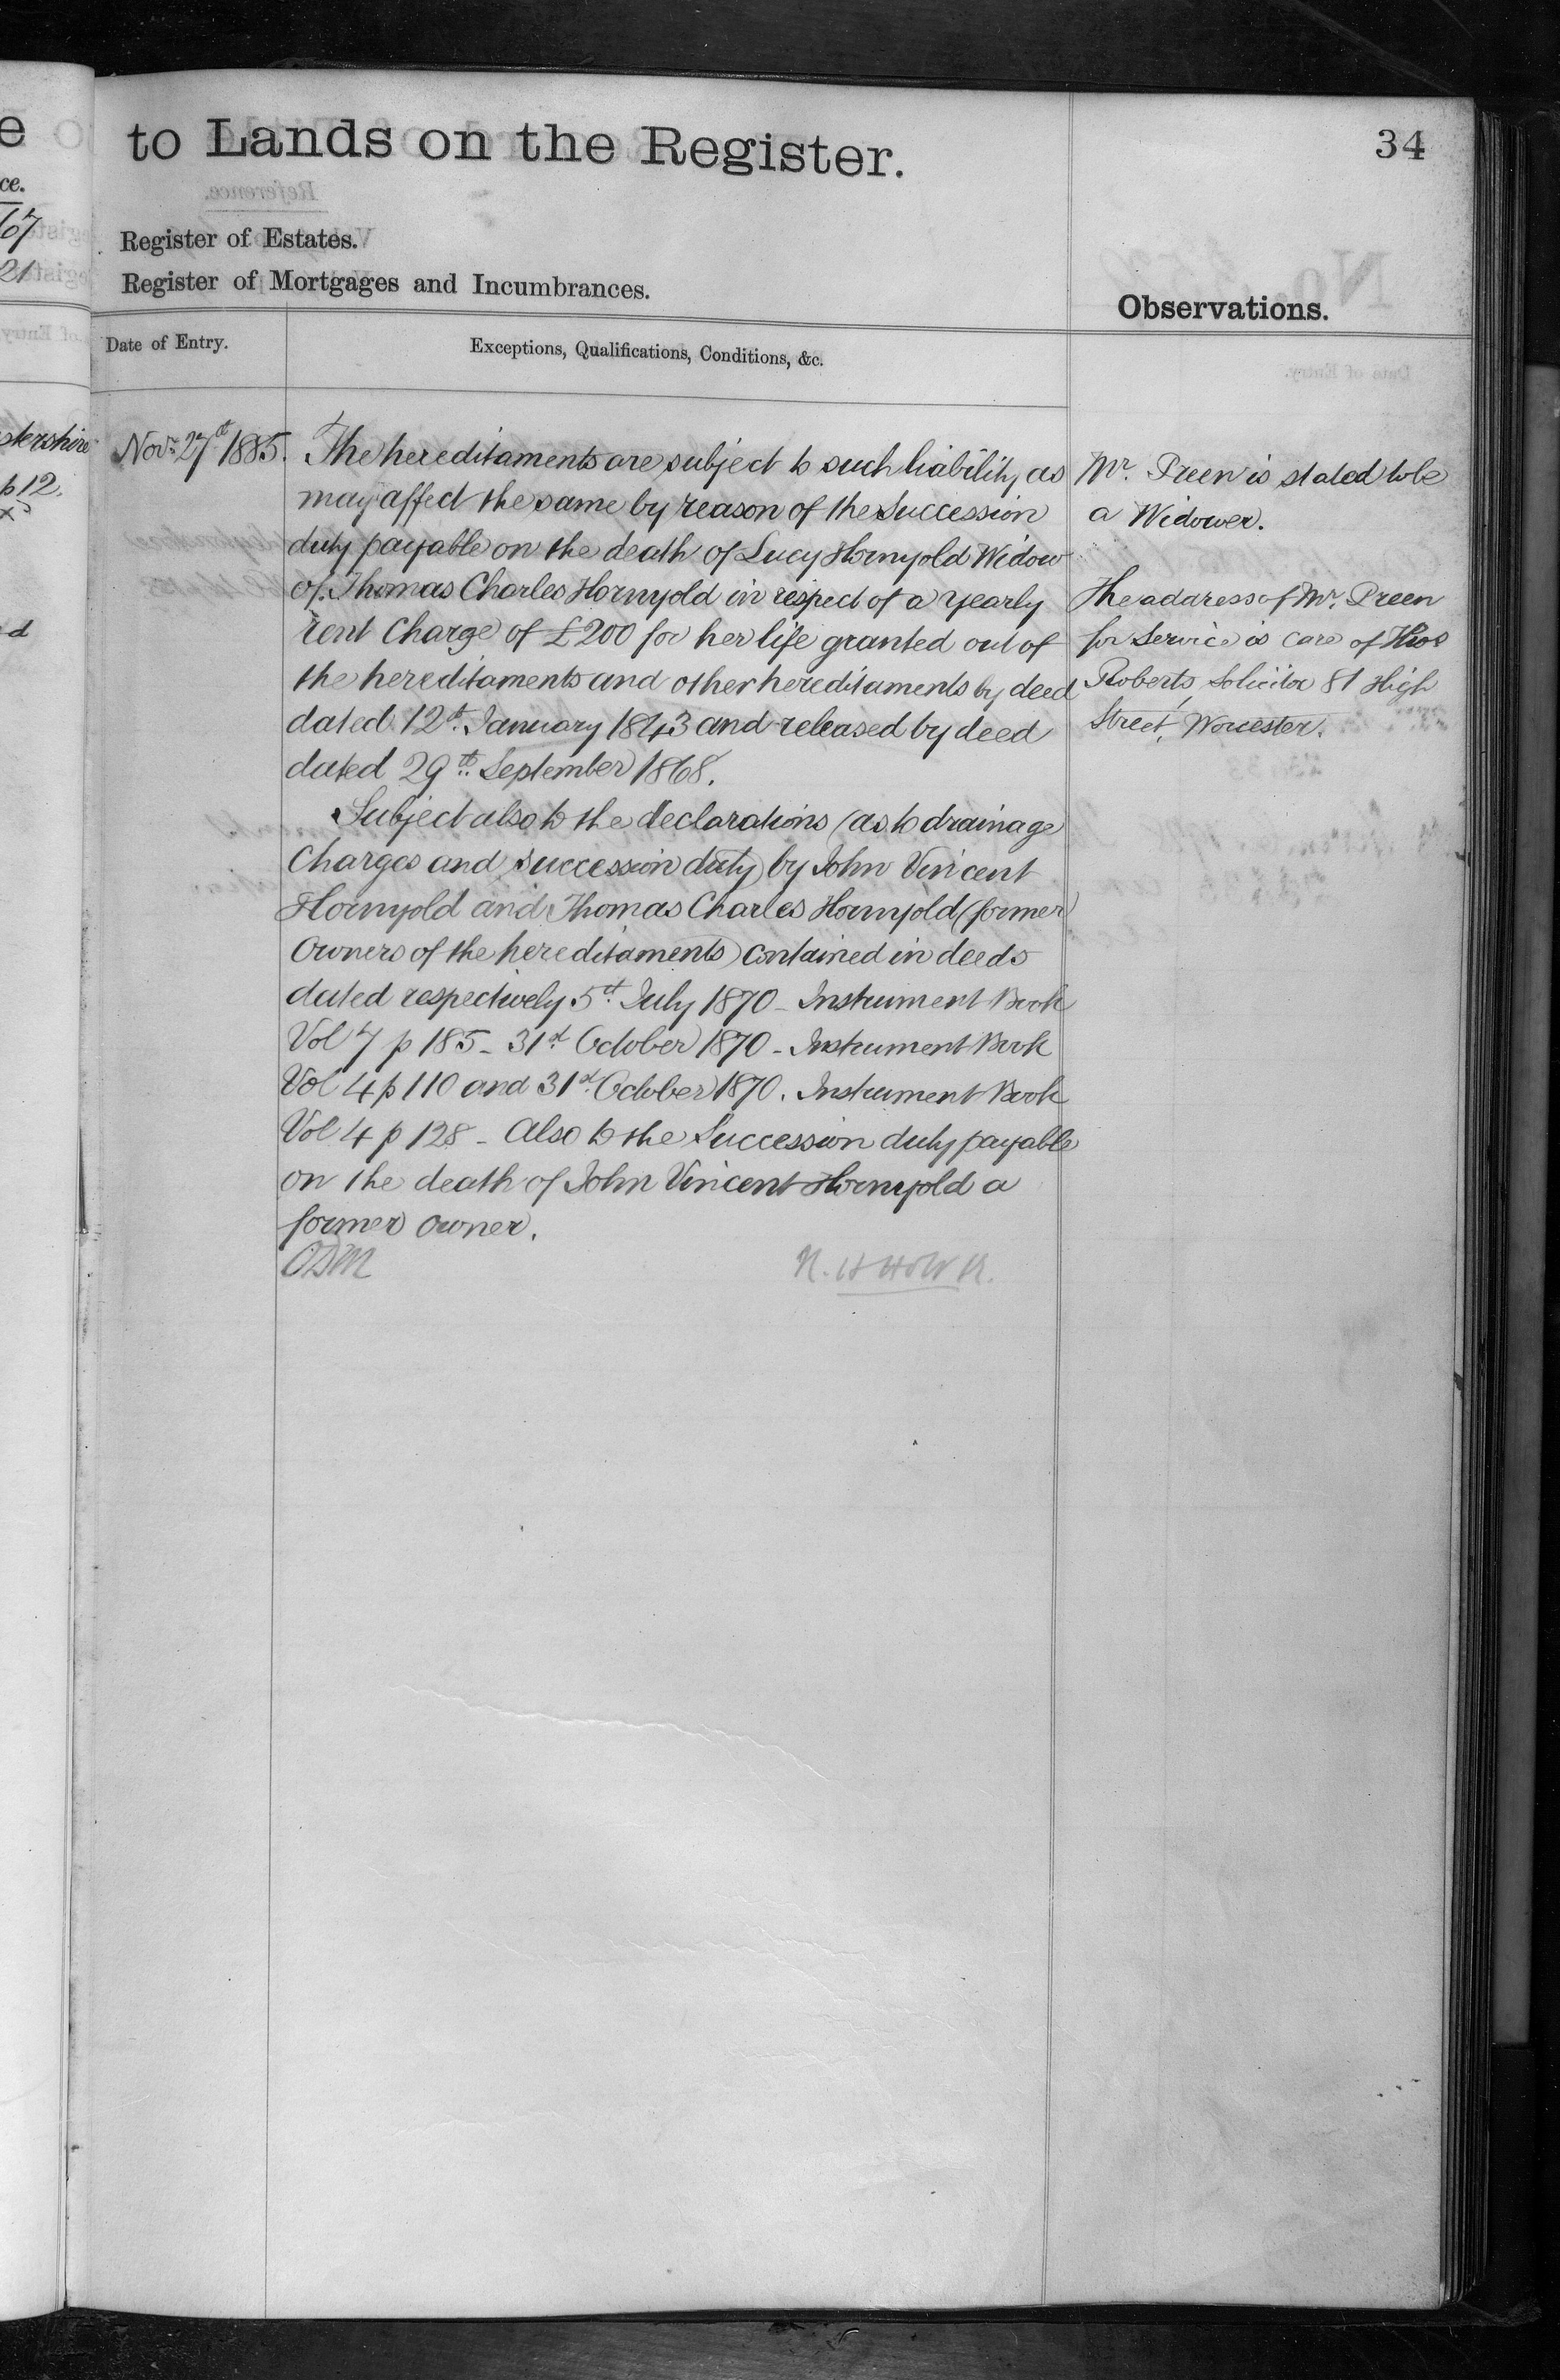 to Lands on the Register.
34
Register of Estates.
Register of Mortgages and Incumbrances.
Observations.
Date of Entry.
Exceptions, Qualifications, Conditions, &c.
Novr. 27th 1885.
The hereditaments are subject to such liability as
may affect the same by reason of the Succession
duty payable on the death of Lucy Hornyold Widow
of Thomas Charles Hornyold in respect of a yearly
rent Charge of £200 for her life granted out of
the hereditaments and other hereditaments by deed
dated 12th. January 1843 and released by deed
dated 29th. September 1868.
Subject also to the declarations (as to drainage
Charges and succession duty) by John Vincent
Hornyold and Thomas Charles Hornyold (former
Owners of the hereditaments) contained in deeds
dated respectively 5th. July 1870 - Instrument Book
Vol 7 p 185 - 31st. October 1870 - Instrument Book
Vol 4 p 110 and 31st. October 1870. Instrument Book
Vol 4 p 128 - Also to the Succession duty payable
on the death of John Vincent Hornyold a
former owner.
Mr. Preen is stated to be
a Widower.
The address of Mr. Preen
for Service is care of
Roberts, Solicitor 81 High
Street, Worcester.
ce.
67
21
p 12.